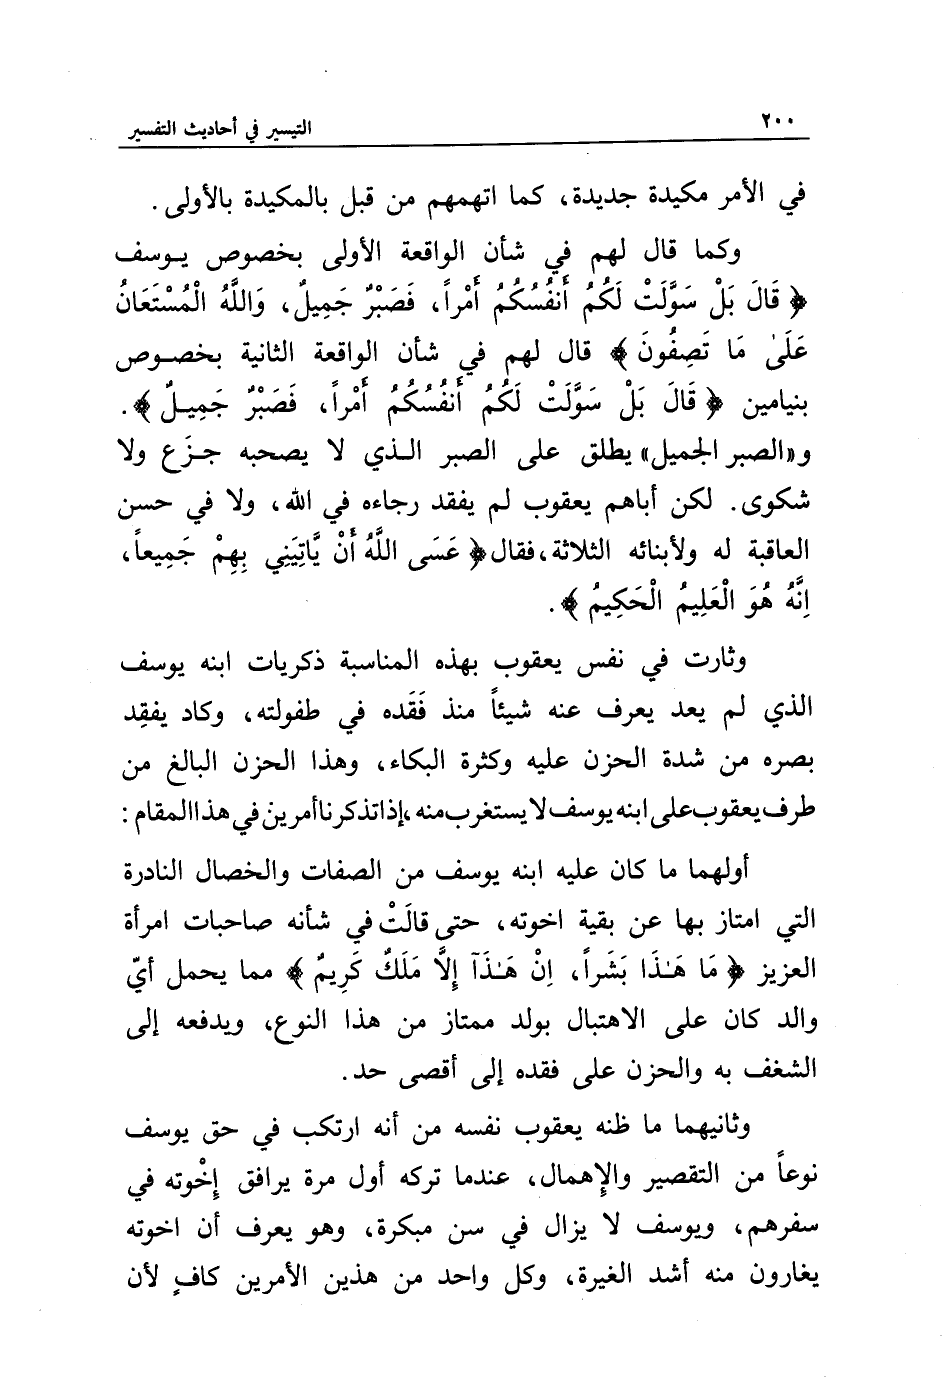 ٢٠٠
التيسير في أحاديث التفسير
في الأمر مكيدة جديدة، كما اتهمهم من قبل بالمكيدة بالأولى.
وكما قال لهم في شأن الواقعة الأولى بخصوص يوسف
﴿ قَالَ بَلْ سَوَّلَتْ لَكُمُ أَنفُسُكُمُ أَمْراً، فَصَبْرٌ جَمِيلٌ، وَاللَّهُ الْمُسْتَعَانُ
عَلَىٰ مَا تَصِفُونَ ﴾ قال لهم في شأن الواقعة الثانية بخصوص
بنيامين ﴿ قَالَ بَلْ سَوَّلَتْ لَكُمُ أَنفُسُكُمُ أَمْراً، فَصَبْرٌ جَمِيلٌ ﴾.
و«الصبر الجميل» يطلق على الصبر الذي لا يصحبه جزَع ولا
شكوى. لكن أباهم يعقوب لم يفقد رجاءه في الله، ولا في حسن
العاقبة له ولأبنائه الثلاثة، فقال ﴿ عَسَى اللَّهُ أَنْ يَّاتِيَنِي بِهِمْ جَمِيعاً،
اِنَّهُ هُوَ الْعَلِيمُ الْحَكِيمُ ﴾.
وثارت في نفس يعقوب بهذه المناسبة ذكريات ابنه يوسف
الذي لم يعد يعرف عنه شيئاً منذ فَقَده في طفولته، وكاد يفقِد
بصره من شدة الحزن عليه وكثرة البكاء، وهذا الحزن البالغ من
طرف يعقوب على ابنه يوسف لا يستغرب منه، إذا تذكرنا أمرين في هذا المقام :
أولهما ما كان عليه ابنه يوسف من الصفات والخصال النادرة
التي امتاز بها عن بقية اخوته، حتى قالَتْ في شأنه صاحبات امرأة
العزيز ﴿ مَا هَـٰذَا بَشَراً، اِنْ هَـٰذَآ إِلَّا مَلَكٌ كَرِيمٌ ﴾ مما يحمل أيّ
والد كان على الاهتبال بولد ممتاز من هذا النوع، ويدفعه إلى
الشغف به والحزن على فقده إلى أقصى حد.
وثانيهما ما ظنه يعقوب نفسه من أنه ارتكب في حق يوسف
نوعاً من التقصير والإهمال، عندما تركه أول مرة يرافق إخْوته في
سفرهم، ويوسف لا يزال في سن مبكرة، وهو يعرف أن اخوته
يغارون منه أشد الغيرة، وكل واحد من هذين الأمرين كافٍ لأن